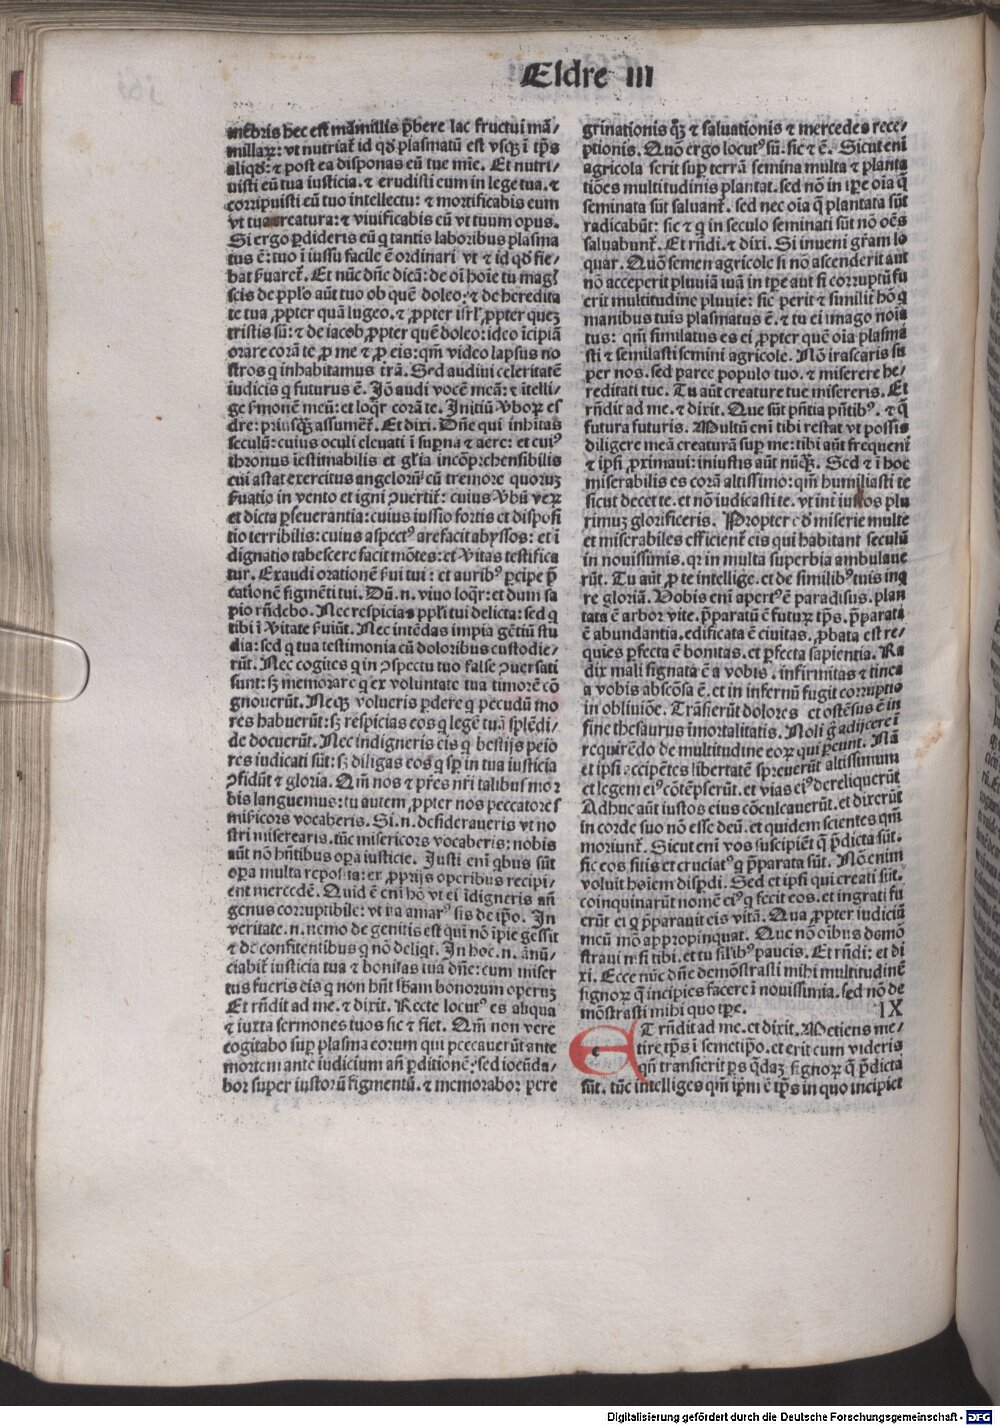 Esdre III
mẽbris hec est mãmillis p̃bere lac fructui mã/
millarꝝ: vt nutriat᷑ id qd̕ plasmatũ est vsqꝫ ĩ tp̃s
aliqd̕: ⁊ post ea disponas eũ tue mĩe. Et nutri/
uisti eũ tua iusticia. ⁊ erudisti eum in lege tua. ⁊
corripuisti eũ tuo intellectu: ⁊ mortificabis eum
vt tua creatura: ⁊ viuificabis eũ vt tuum opus.
Si ergo ꝑdideris eũ q̃ tantis laboribus plasma
tus ẽ: tuo ĩ iussu facile ẽ ordinari vt ⁊ id qd̕ fie/
bat ẜuaret᷑. Et nũc dñe dicã: de oĩ hoĩe tu mag᷑
scis de pp̃lo aũt tuo ob quẽ doleo: ⁊ de heredita
te tua ꝓpter quã lugeo. ⁊ ꝓpter isrl̕ ꝓpter quez
tristis sũ: ⁊ de iacob ꝓpter quẽ doleo: ideo ĩcipiã
orare corã te ꝓ me ⁊ ꝓ eis: qm̃ video lapsus no
stros q̃ inhabitamus t̕rã. Sed audiui celeritatẽ
iudicis q̃ futurus ẽ. Jõ audi vocẽ meã: ⁊ ĩtelli/
ge ẜmonẽ meũ: et loq̃r corã te. Initiũ v̕borꝝ es
dre: priusqꝫ assumeret᷑. Et dixi. Dñe qui inhĩtas
seculũ: cuius oculi eleuati ĩ supna ⁊ aere: et cui⁹
thronus ĩestimabilis et gl̕ia incõprehensibilis
cui astat exercitus angelorũ cũ tremore quoruꝫ
ẜuatio in vento et igni ꝯuertit᷑: cuius v̕bũ veꝝ
et dicta ꝑseuerantia: cuius iussio fortis et dispoſi
tio terribilis: cuius aspect⁹ arefacit abyssos: et ĩ
dignatio tabescere facit mõtes: et v̕itas testifica
tur. Exaudi orationẽ ẜui tui: et aurib⁹ ꝑcipe p̃
cationẽ figmẽti tui. Dũ .n. viuo loq̃r: et dum sa
pio rñdebo. Nec respicias pp̃li tui delicta: sed q̃
tibi ĩ v̕itate ẜuiũt. Nec intẽdas impia gẽtiũ stu
dia: sed q̃ tua testimonia cũ doloribus custodie/
rũt. Nec cogites q̃ in ꝯspectu tuo false ꝯuersati
sunt: sꝫ memorare q̃ ex voluntate tua timorẽ cõ
gnouerũt. Neqꝫ volueris ꝑdere q̃ pecudũ mo
res habuerũt: sꝫ respicias eos q̃ legẽ tuã splẽdi/
de docuerũt. Nec indigneris eis q̃ bestijs peio
res iudicati sũt: sꝫ diligas eos q̃ sp̃ in tua iusticia
ꝯfidũt ⁊ gloria. Qm̃ nos ⁊ p̃res nr̃i talibus mor
bis languemus: tu autem ꝓpter nos peccatores
mis̃icors vocaberis. Si .n. desideraueris vt no
stri miserearis. tũc misericors vocaberis: nobis
aũt nõ hñtibus opa iusticie. Justi eni q̃bus sũt
opa multa reposita: ex ꝓprijs operibus recipi/
ent mercedẽ. Quid ẽ eni hõ vt ei ĩdigneris añ
genus corruptibile: vt ita amar⁹ sis de ip̃o. In
veritate .n. nemo de genitis est qui nõ ĩpie gessit
⁊ de confitentibus q̃ nõ deliqt᷑. In hoc .n. ãnũ/
ciabit᷑ iusticia tua ⁊ bonitas tua dñe: cum miser
tus fueris eis q̃ non hñt sb̃am bonorum operuꝫ
Et rñdit ad me. ⁊ dixit. Recte locut⁹ es aliqua
⁊ iuxta sermones tuos sic ⁊ fiet. Qm̃ non vere
cogitabo sup plasma eorum qui peccauerũt ante
mortem ante iudicium añ ꝑditionẽ: sed iocũda/
bor super iustorũ figmentũ. ⁊ memorabor pere
grinationis qꝫ ⁊ saluationis ⁊ mercedes rece/
ptionis. Quõ ergo locut⁹ sũ. sic ⁊ ẽ. Sicut eni
agricola serit sup terrã semina multa ⁊ planta
tiões multitudinis plantat. sed nõ in tp̃e oĩa q̃
seminata sũt saluant᷑. sed nec oĩa q̃ plantata sũt
radicabũt: sic ⁊ q̃ in seculo seminati sũt nõ oẽs
saluabunt᷑. Et rñdi. ⁊ dixi. Si inueni gr̃am lo
quar. Quõ semen agricole si nõ ascenderit aut
nõ acceperit pluuiã tuã in tp̃e aut si corruptũ fu
erit multitudine pluuie: sic perit ⁊ similit᷑ hõ q̃
manibus tuis plasmatus ẽ. ⁊ tu ei imago noĩa
tus: qm̃ similatus es ei ꝓpter quẽ oĩa plasma
sti ⁊ semilasti semini agricole. Nõ irascaris su
per nos. sed parce populo tuo. ⁊ miserere he/
reditati tue. Tu aũt creature tue misereris. Et
rñdit ad me. ⁊ dixit. Que sũt pñtia pñtib⁹. ⁊ q̃
futura futuris. Multũ eni tibi restat vt possis
diligere meã creaturã sup me: tibi aũt frequent᷑
⁊ ip̃i ꝓximaui: iniustis aũt nũqꝫ. Sed ⁊ ĩ hoc
miserabilis es corã altissimo: qm̃ humiliasti te
sicut decet te. et nõ iudicasti te. vt int᷑ iustos plu
rimuꝫ glorificeris. Propter qd̕ miserie multe
et miserabiles efficient᷑ eis qui habitant seculũ
in nouissimis. qꝛ in multa superbia ambulaue
rũt. Tu aũt ꝓ te intellige. et de similib⁹ tuis inq̃
re gloriã. Vobis eni apert⁹ ẽ paradisus. plan
tata ẽ arbor vite. p̃paratũ ẽ futuꝝ tp̃s. p̃parata
ẽ abundantia. edificata ẽ ciuitas. ꝓbata est re/
quies ꝑfecta ẽ bonitas. et ꝑfecta sapientia. Ra
dix mali signata ẽ a vobis. infirmitas ⁊ tinea
a vobis abscõsa ẽ. et in infernũ fugit corruptio
in obliuiõe. Trãsierũt dolores et ostẽsus ẽ in
fine thesaurus ĩmortalitatis. Noli g̃ adijcere ĩ
requirẽdo de multitudine eorꝝ qui ꝑeunt. Nã
et ip̃i accipẽtes libertatẽ spreuerũt altissimum
et legem ei⁹ cõtẽpserũt. et vias ei⁹ dereliquerũt
Adhuc aũt iustos eius cõculcauerũt. et dixerũt
in corde suo nõ esse deũ. et quidem scientes qm̃
moriunt᷑. Sicut eni vos suscipiẽt q̃ p̃dicta sũt.
sic eos sitis et cruciat⁹ q̃ p̃parata sũt. Nõ enim
voluit hoĩem disꝑdi. Sed et ip̃i qui creati sũt.
coinquinarũt nomẽ ei⁹ q̃ fecit eos. et ingrati fu
erũt ei q̃ p̃parauit eis vitã. Qua ꝓpter iudiciũ
meũ mõ appropinquat. Que nõ oĩbus demõ
straui nisi tibi. et tu sil̕ib⁹ paucis. Et rñdi: et di
xi. Ecce nũc dñe demõstrasti mihi multitudinẽ
signorꝝ q̃ incipies facere ĩ nouissimis. sed nõ de
mõstrasti mihi quo tp̃e. IX
ET rñdit ad me. et dixit. Metiens me/
tire tp̃s ĩ semetip̃o. et erit cum videris
qñ transierit ꝑs q̃dã signorꝝ q̃ p̃dicta
sũt. tũc intelliges qm̃ ip̃m ẽ tp̃s in quo incipiet
Digitalisierung gefördert durch die Deutsche Forschungsgemeinschaft - DFG